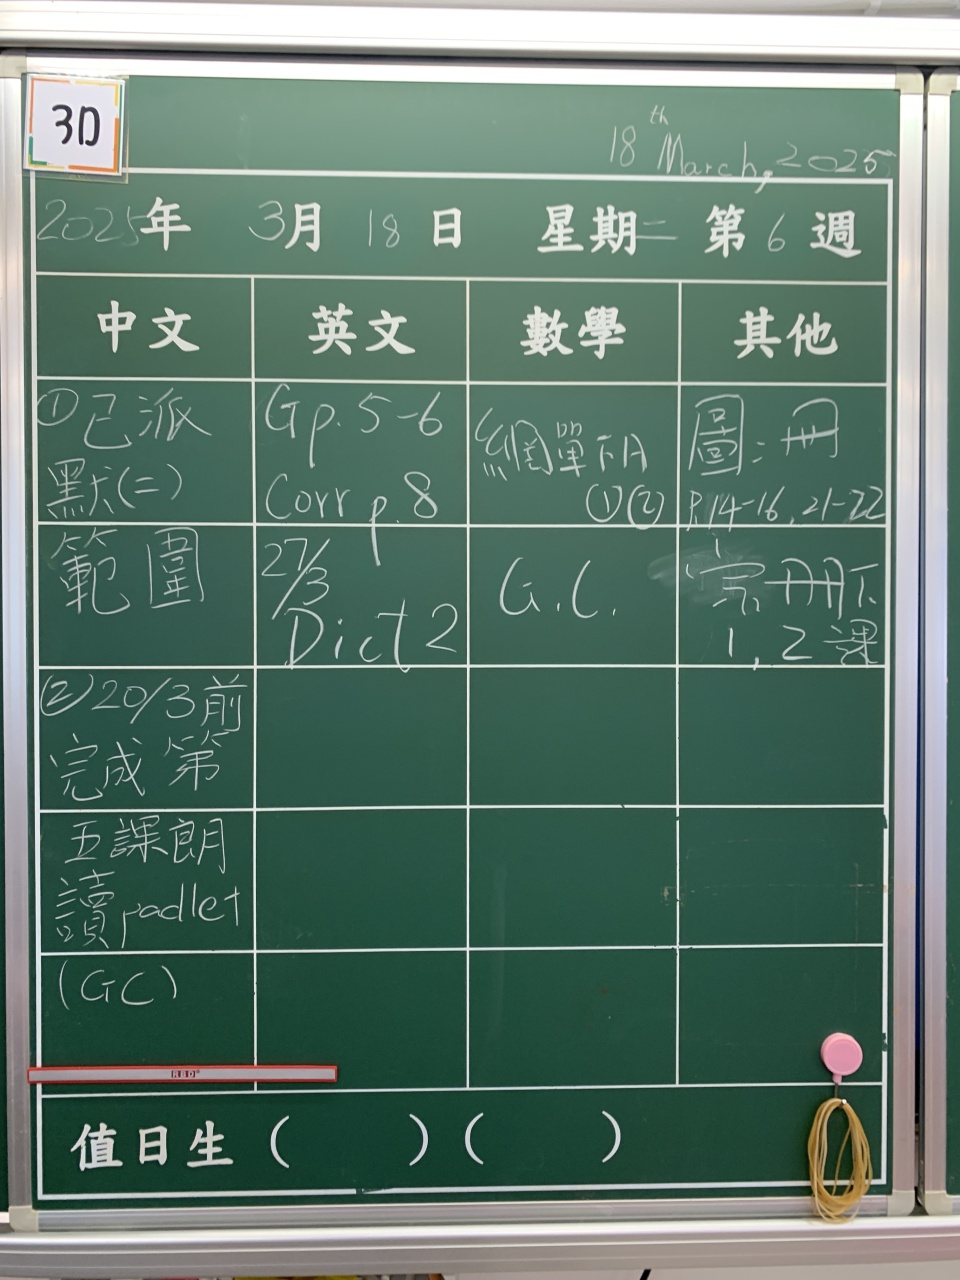 3D
18th March, 2025
2025年 3月 18日 星期二 第6週
中文 英文 數學 其他
①已派
默(二)
範圍
②20/3前
完成第
五課朗
讀padlet
(GC)
Gp.5-6
Corr p.8
27/3
Dict 2
網單下A
①②
G.C.
圖:冊
P.14-16,21-22
宗冊下
1,2課
RBD
值日生 ( ) ( )